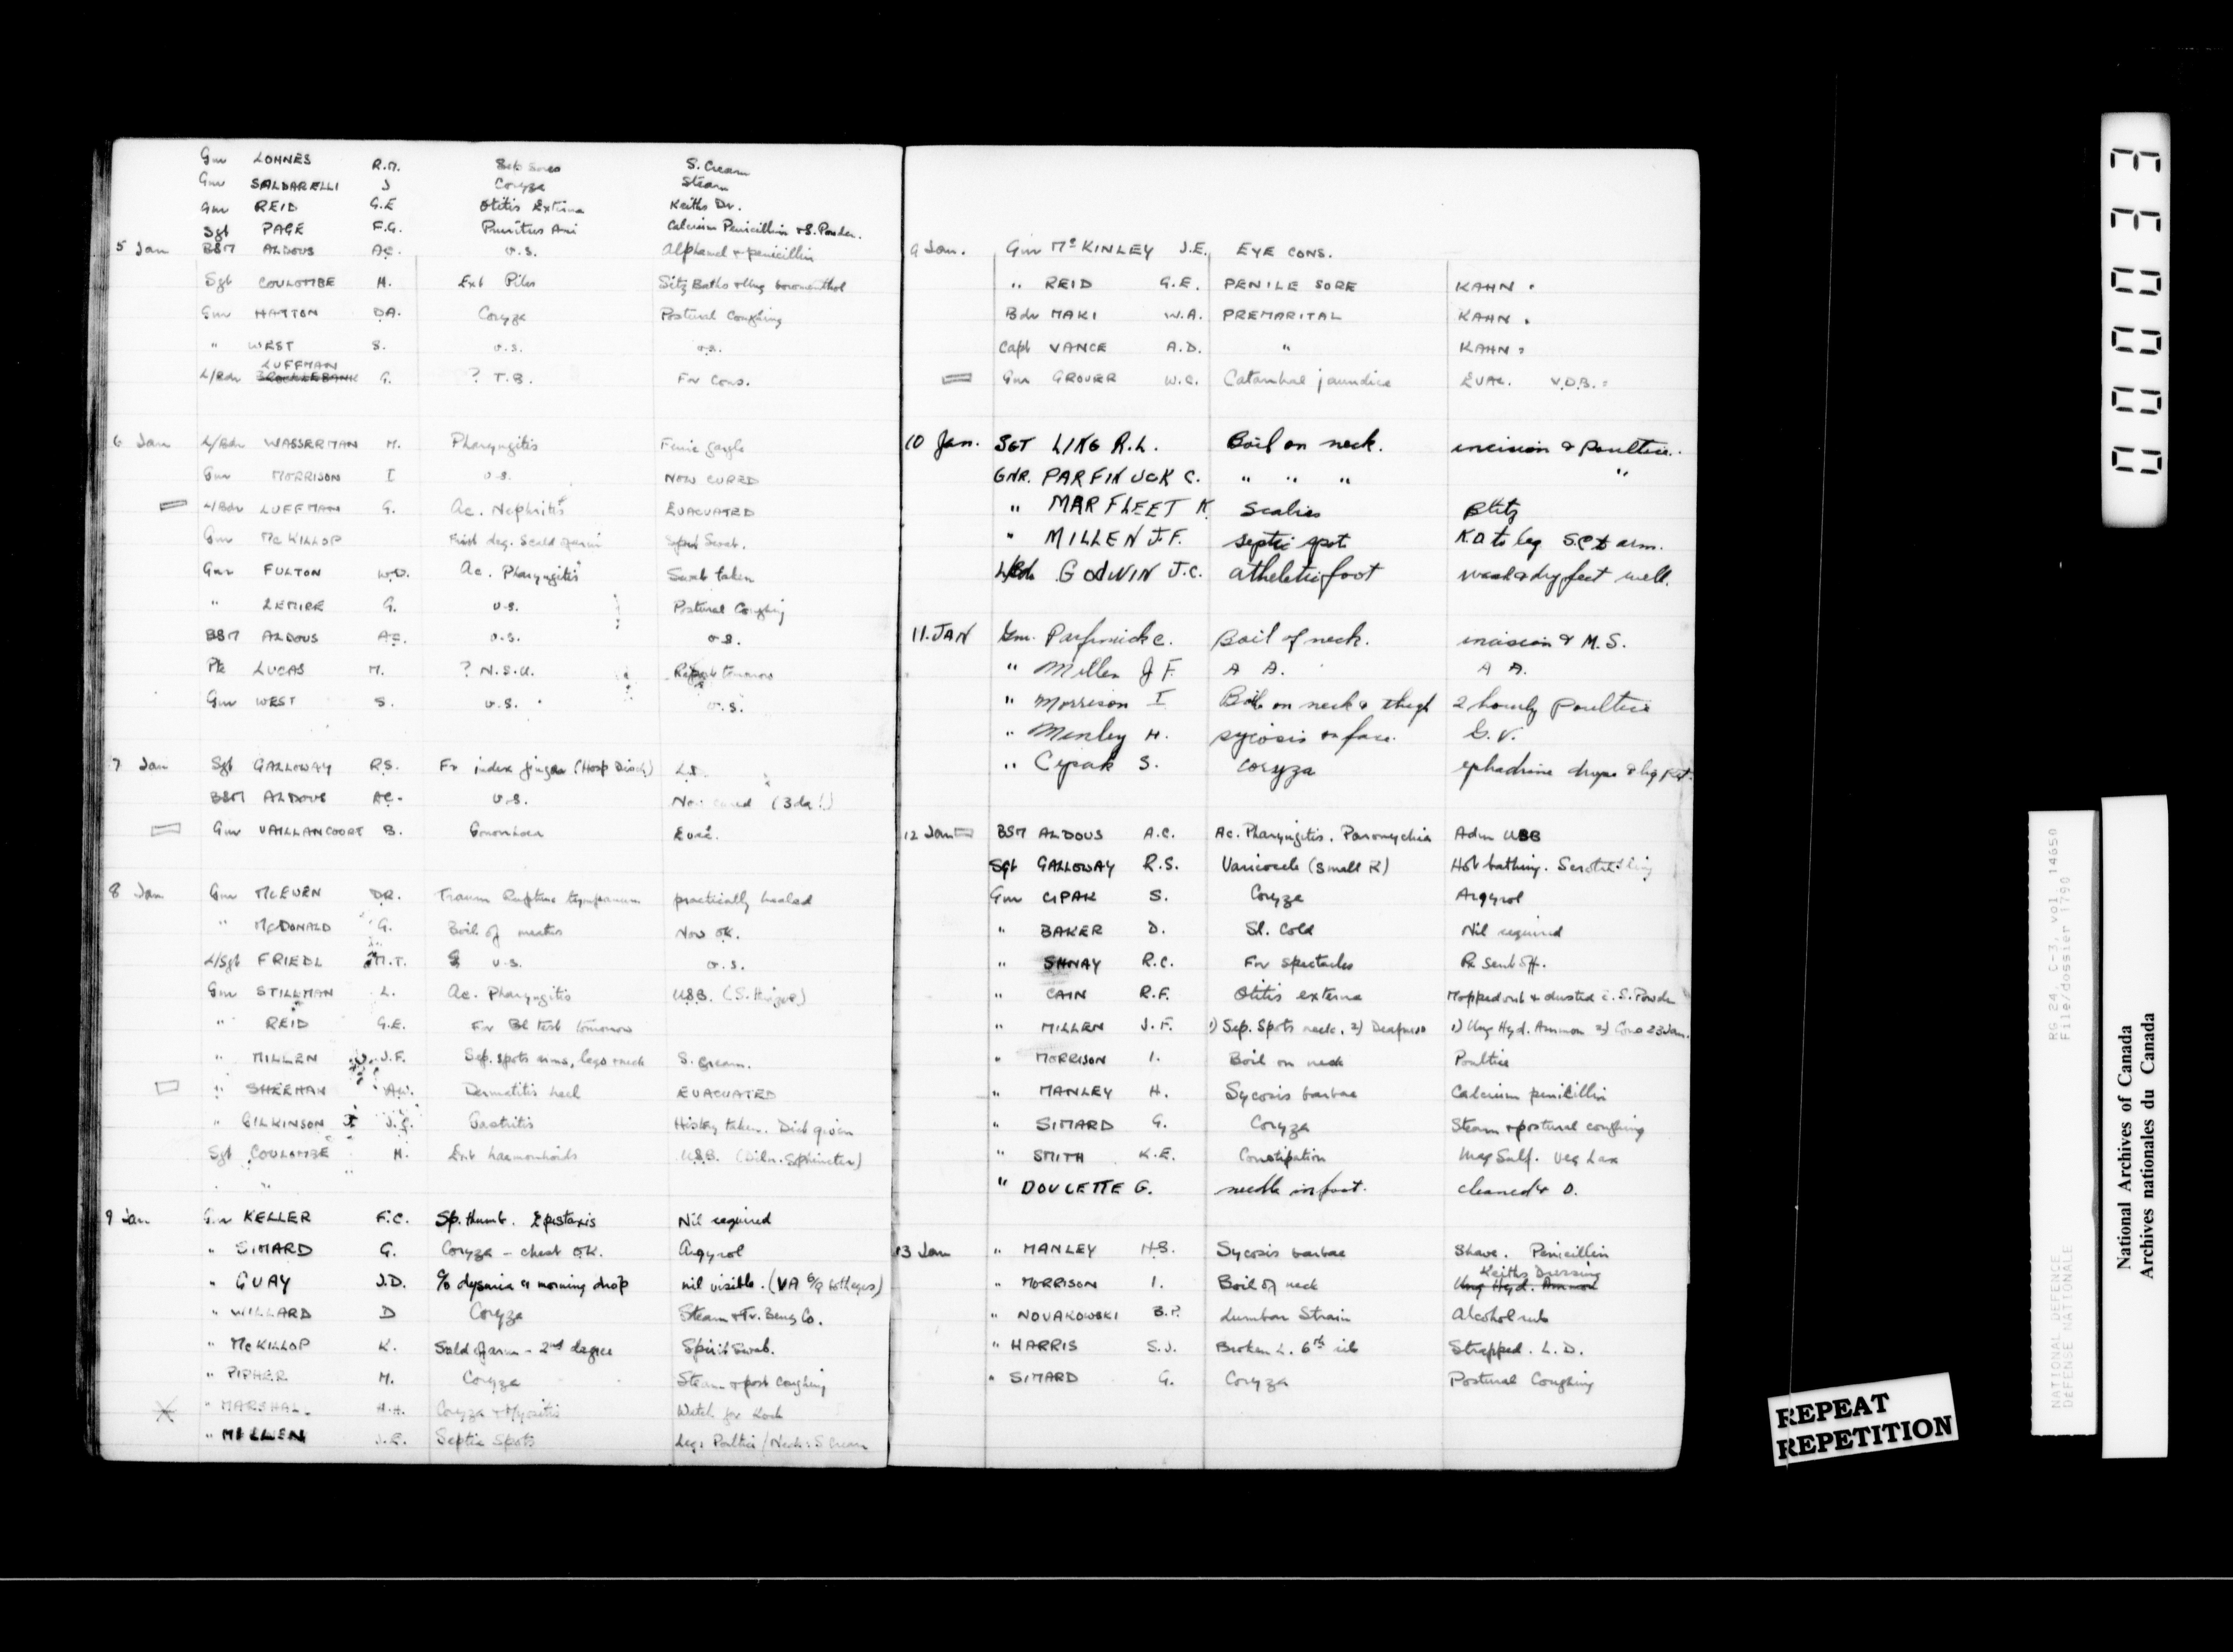 Gnr LOHNES R.M. Seb sores S. Cream
Gnr SALDARELLI J Coryza Steam
Gnr REID G.E Otitis Externa Keiths Dr.
Sgt PAGE F.G. Pruritus Ani Calcium Penicillin + S. Powder.
5 Jan BSM ALDOUS AC. v.s. Alphamel + penicillin
Sgt COULOMBE H. Ext Piles Sitz Baths + Ung boromenthol
Gnr HATTON DA. Coryza Postural Coughing
" WEST S. v.s. v.s.
LUFFMAN
L/Bdr BROCKLEBANK G. ? T.B. For Cons.
6 Jan L/Bdr WASSERMAN M. Pharyngitis Ferric gargle
Gnr MORRISON I v.s. NOW CURED
L/Bdr LUFFMAN G. Ac. Nephritis EVACUATED
Gnr McKILLOP First deg. Scald of arm Spirit Swab.
Gnr FULTON W.D. Ac. Pharyngitis Swab taken
" LEMIRE G. v.s. Postural Coughing
BSM ALDOUS AC. v.s. v.s.
Pte LUCAS M. ? N.S.U. Report tomorrow
Gnr WEST S. v.s. v.s.
7 Jan Sgt GALLOWAY R.S. Fr index finger (Hosp Disch) L.D.
BSM ALDOUS AC. v.s. Now cured (3 da!)
Gnr VAILLANCOURT B. Gonorrhoea Evac.
8 Jan Gnr McEUEN DR. Traum Rupture tympanum practically healed
" McDONALD G. Boil of meatus Now OK.
L/Sgt FRIEDL M.T. v.s. v.s.
Gnr STILLMAN L. Ac. Pharyngitis U.S.B.
" REID G.E. For Bl test tomorrow
" MILLEN J.F. Sep. spots arms, legs + neck S. Cream.
" SHEEHAN A.W. Dermatitis heel EVACUATED
" GILKINSON J.G. Gastritis History taken. Diet given
Sgt COULOMBE H. Ext haemorrhoids U.S.B. (Diln. Sphincter)
"
9 Jan Gnr KELLER F.C. Sp. thumb. Epistaxis Nil required
" SIMARD G. Coryza - chest OK. Argyrol
" GUAY J.D. c/o dysuria & morning drop nil visible. (VA 6/9 both eyes)
" WILLARD D Coryza Steam + Tr. Benz Co.
" McKILLOP K. Scald of arm - 2nd degree Spirit Swab.
" PIPHER M. Coryza Steam + post coughing
" MARSHAL. H.H. Coryza + Myositis Watch for
" MILLEN J.F. Septic Spots Leg: Poultice / Neck: S Cream
9 Jan. Gnr McKINLEY J.E. EYE CONS.
" REID G.E. PENILE SORE KAHN.
Bdr MAKI W.A. PREMARITAL KAHN.
Capt VANCE A.D. " KAHN.
Gnr GROVER W.C. Catarrhal jaundice EVAC. V.D.B.
10 Jan. SGT LING R.L. Boil on neck. incision & Poultice.
GNR. PARFINUCK C. " " " "
" MARFLEET K. Scabies Blitz
" MILLEN J.F. septic spots K.D to leg S.C to arm.
L/Bdr GODWIN J.C. atheletic foot wash & dry feet well.
11. JAN Gnr. Parfinuick C. Boil of neck. incision & M.S.
" Millen J F. A A. A A.
" Morrison I Boils on neck & thigh 2 hourly Poultice
" Manley H. sycosis on face. G. V.
" Cipak S. coryza ephadrine drops
12 Jan BSM ALDOUS A.C. Ac. Pharyngitis. Paronychia Adm USB
Sgt GALLOWAY R.S. Varicocele (small R) Hot bathing.
Gnr CIPAK S. Coryza Argyrol
" BAKER D. Sl. Cold Nil required
" SHNAY R.C. For spectacles Rx sent off.
" CAIN R.F. Otitis externa Mopped out & dusted c. S. Powder
" MILLEN J.F. 1) Sep. Spots neck. 2) Deafness 1) Ung Hyd. Ammon 2) Cons 23 Jan.
" MORRISON I. Boil on neck Poultice
" MANLEY H. Sycosis barbae Calcium penicillin
" SIMARD G. Coryza Steam + postural coughing
" SMITH K.E. Constipation Mag Sulf. Veg Lax
" DOUCETTE G. needle in foot. cleaned & D.
13 Jan " MANLEY H.S. Sycosis barbae Shave. Penicillin
Keiths Dressing
" MORRISON I. Boil of neck Ung Hyd. Ammon
" NOVAKOWSKI B.P. Lumbar Strain Alcohol rub
" HARRIS S.J. Broken L. 6th rib Strapped. L.D.
" SIMARD G. Coryza Postural Coughing
REPEAT
REPETITION
RG 24, C-3, vol. 14650
File/dossier 1790
NATIONAL DEFENCE
DEFENSE NATIONALE
National Archives of Canada
Archives nationales du Canada